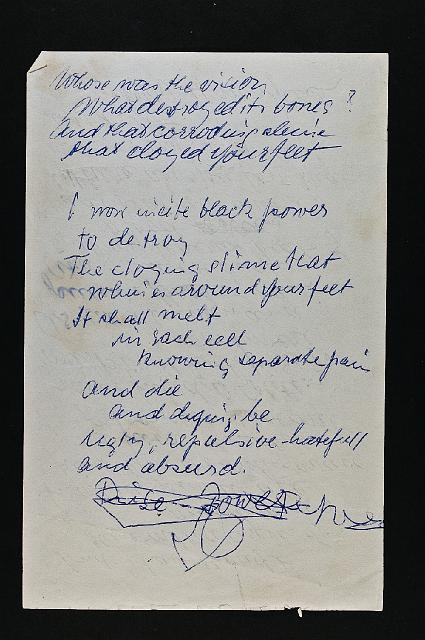 Whose was the vision
What destroyed its bones?
and that corroding slime
that cloyed your feet
I now incite black power
to destroy
The cloying slime that
whines around your feet
It shall melt
in each cell
Knowing separate pain
and die
and dying, be
ugly, repulsive-hatefull
and absurd.